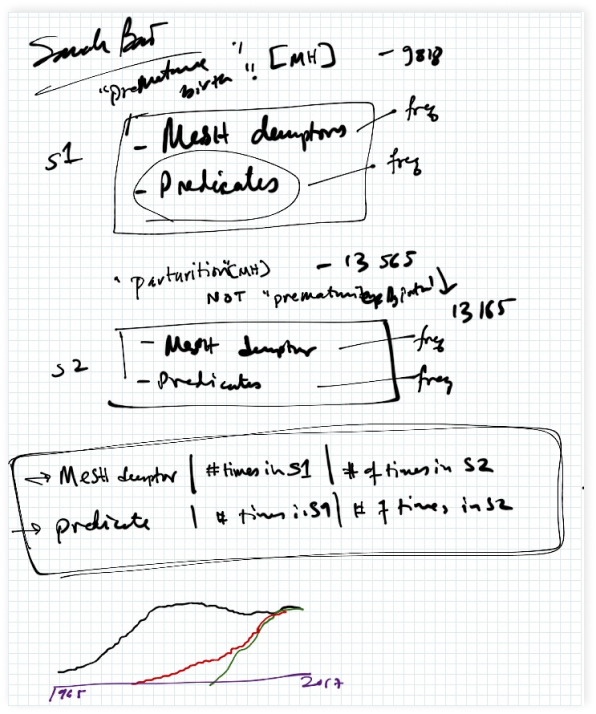 "Premature birth" [MH] - 9818
S1
- MesH descriptors - freq
- Predicates - freq
"parturition"[MH] - 13 565
NOT "premature birth"
13 165
S2
- MesH descriptor - freq
- Predicates - freq
→ MesH descriptor | # times in S1 | # of times in S2
→ predicate | # times in S1 | # of times in S2
1965 2017